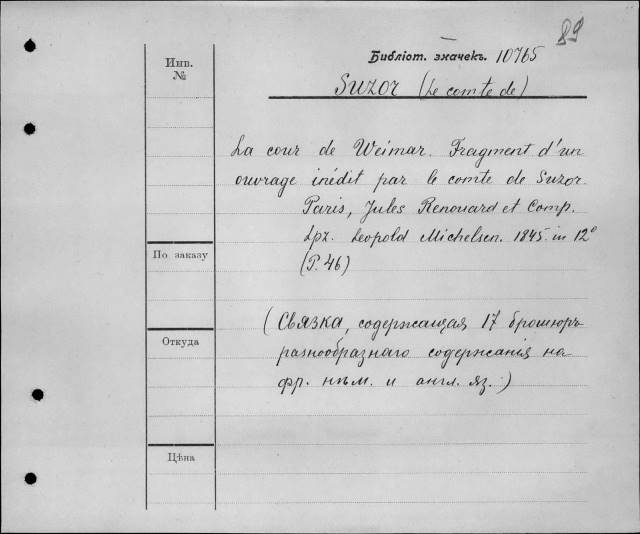 89
Библіот. значекъ. 10765
Инв.
№
Suzor (Le comte de)
La cour de Weimar. Fragment d'un
ouvrage inédit par le comte de Suzor.
Paris, Jules Renouard et Comp.
Lpz. Leopold Michelsen. 1845. in 12°
(P. 46)
По заказу
(Связка, содержащая 17 брошюръ
разнообразнаго содержанія на
фр. нѣм. и англ. яз.)
Откуда
Цѣна